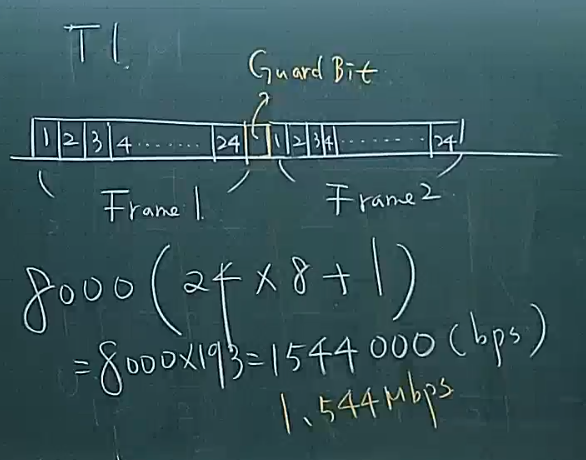 T1
Guard Bit
1 2 3 4 ........ 24 1 2 3 4 ........ 24
Frame 1 Frame 2
8000 ( 24 × 8 + 1 )
= 8000 × 193 = 1544000 (bps)
1.544Mbps